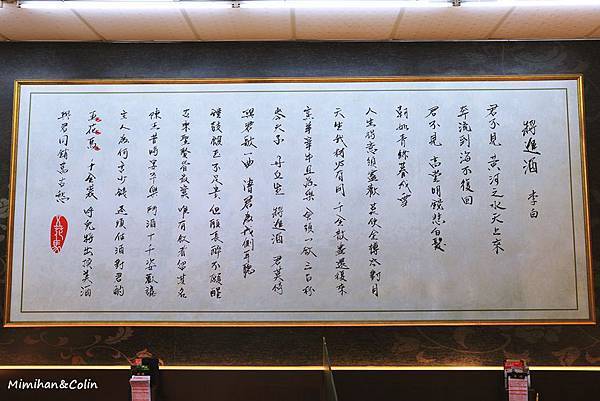 將進酒 李白
君不見 黃河之水天上來
奔流到海不復回
君不見 高堂明鏡悲白髮
朝如青絲暮成雪
人生得意須盡歡 莫使金樽空對月
天生我材必有用 千金散盡還復來
烹羊宰牛且為樂 會須一飲三百杯
岑夫子 丹丘生 將進酒 君莫停
與君歌一曲 請君為我側耳聽
鐘鼓饌玉不足貴 但願長醉不願醒
古來聖賢皆寂寞 唯有飲者留其名
陳王昔時宴平樂 斗酒十千恣歡謔
主人為何言少錢 逕須沽酒對君酌
五花馬 千金裘 呼兒將出換美酒
與君同銷萬古愁
五花馬
Mimihan&Colin